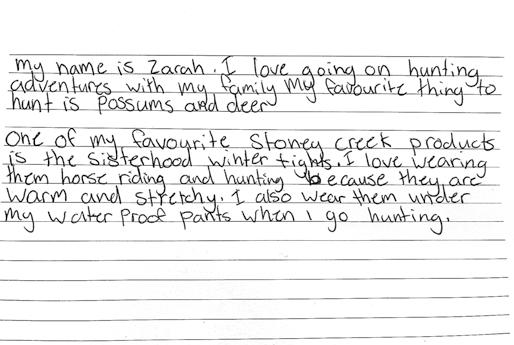 my name is Zarah. I love going on hunting
adventures with my family My favourite thing to
hunt is Possums and deer
One of my favourite Stoney Creek products
is the Sisterhood winter tights. I love wearing
them horse riding and hunting because they are
warm and stretchy. I also wear them under
my water Proof pants when I go hunting.